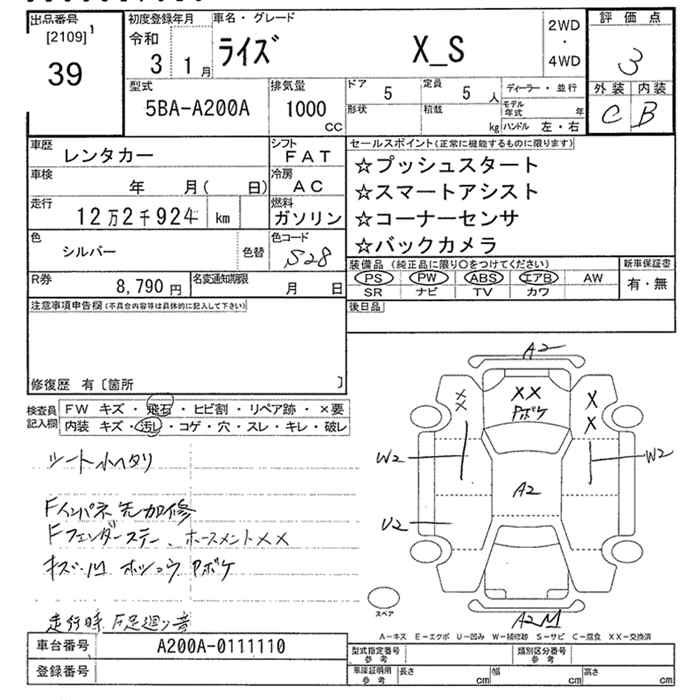 出品番号
[2109] 1
39
初度登録年月
令和
3 1月
車名・グレード
ライズ X_S
2WD
・
4WD
評価点
3
外装 内装
C B
型式
5BA-A200A
排気量
1000
CC
ドア 5
定員 5人
形状
積載 kg
ディーラー・並行
モデル年式 年
ハンドル 左・右
車歴
レンタカー
シフト
FAT
車検
年 月( 日)
冷房
AC
走行
12万2千924 km
燃料
ガソリン
色
シルバー
色替
色コード
S28
R券
8,790円
名変通知期限
月 日
セールスポイント(正常に機能するものに限ります)
☆プッシュスタート
☆スマートアシスト
☆コーナーセンサ
☆バックカメラ
装備品(純正品に限り○をつけてください)
PS PW ABS エアB AW
SR ナビ TV カワ
新車保証書
有・無
後日品
注意事項申告欄(不具合内容等は具体的に記入して下さい)
修復歴 有〔箇所 〕
検査員記入欄
FW キズ・飛石・ヒビ割・リペア跡・×要
内装 キズ・汚レ・コゲ・穴・スレ・キレ・破レ
シート小ヘタリ
Fインパネ先加修
Fフェンダーステー、ホースメント××
キズ・凹 ボッコウ Pボケ
走行時 F足廻り音
A2
××
××
Pボケ
×
×
W2
W2
A2
U2
スペア
A2 M
A－キズ E－エクボ U－凹み W－補修跡 S－サビ C－腐食 XX－交換済
車台番号
A200A-0111110
登録番号
型式指定番号
参考
類別区分番号
参考
車庫証明用
参考
長さ cm
幅 cm
高さ cm